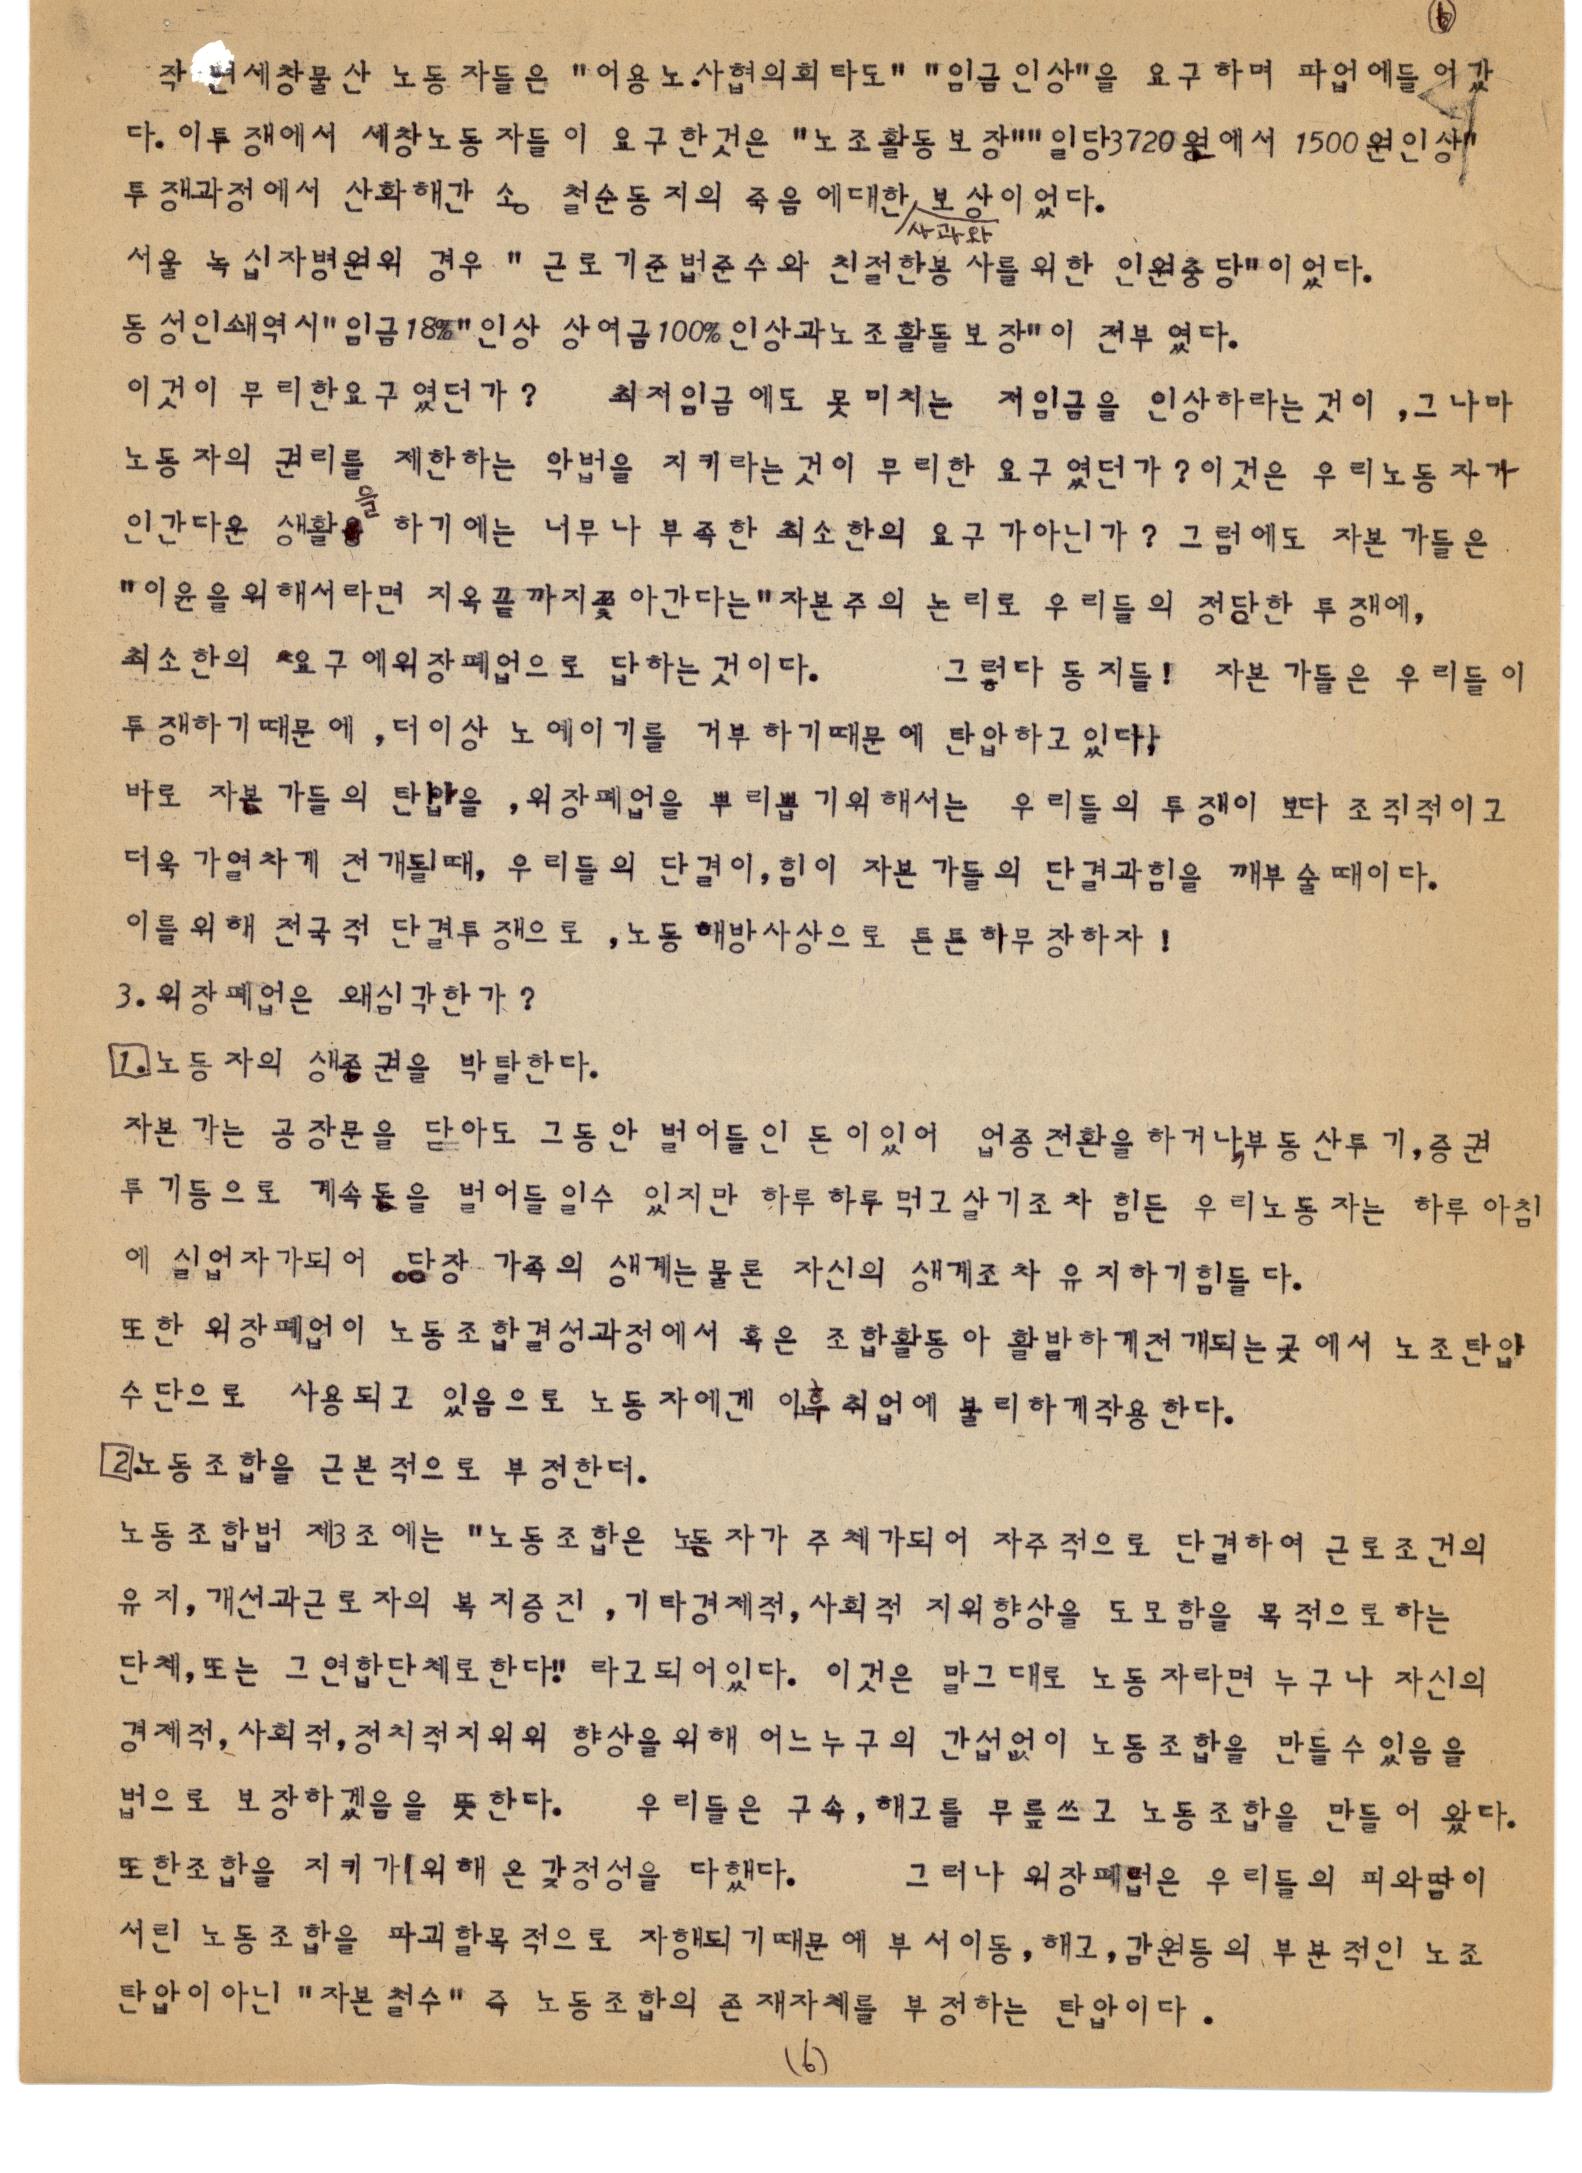 ⑥
작년세창물산 노동자들은 "어용노.사협의회타도" "임금인상"을 요구하며 파업에들어갔
다. 이투쟁에서 세창노동자들이 요구한것은 "노조활동보장""일당3720원에서 1500원인상"
투쟁과정에서 산화해간 송 철순동지의 죽음에대한 사과와 보상이었다.
서울 녹십자병원위 경우 " 근로기준법준수와 친절한봉사를위한 인원충당"이었다.
동성인쇄역시"임금18%"인상 상여금100%인상과노조활돌보장"이 전부였다.
이것이 무리한요구였던가? 최저임금에도 못미치는 저임금을 인상하라는것이 ,그나마
노동자의 권리를 제한하는 악법을 지키라는것이 무리한 요구였던가?이것은 우리노동자가
인간다운 생활을 하기에는 너무나 부족한 최소한의 요구가아닌가? 그럼에도 자본가들은
"이윤을위해서라면 지옥끝까지쫓아간다는"자본주의 논리로 우리들의 정당한 투쟁에,
최소한의 요구에위장폐업으로 답하는것이다. 그렇다 동지들! 자본가들은 우리들이
투쟁하기때문에 ,더이상 노예이기를 거부하기때문에 탄압하고있다,
바로 자본가들의 탄압을 ,위장폐업을 뿌리뽑기위해서는 우리들의 투쟁이 보다 조직적이고
더욱 가열차게 전개될때, 우리들의 단결이,힘이 자본가들의 단결과힘을 깨부술때이다.
이를위해 전국적 단결투쟁으로 ,노동해방사상으로 튼튼하무장하자!
3.위장폐업은 왜심각한가?
1.노동자의 생존권을 박탈한다.
자본가는 공장문을 닫아도 그동안 벌어들인 돈이있어 업종전환을하거나,부동산투기,증권
투기등으로 계속돈을 벌어들일수 있지만 하루하루먹고살기조차 힘든 우리노동자는 하루아침
에 실업자가되어 당장 가족의 생계는물론 자신의 생계조차 유지하기힘들다.
또한 위장폐업이 노동조합결성과정에서 혹은 조합활동아 활발하게전개되는곳에서 노조탄압
수단으로 사용되고 있음으로 노동자에겐 이후취업에 불리하게작용한다.
2.노동조합을 근본적으로 부정한더.
노동조합법 제3조에는 "노동조합은 노동자가 주체가되어 자주적으로 단결하여 근로조건의
유지,개선과근로자의 복지증진 ,기타경제적,사회적 지위향상을 도모함을 목적으로하는
단체,또는 그연합단체로한다" 라고되어있다. 이것은 말그대로 노동자라면 누구나 자신의
경제적,사회적,정치적지위위 향상을위해 어느누구의 간섭없이 노동조합을 만들수있음을
법으로 보장하겠음을 뜻한다. 우리들은 구속,해고를 무릎쓰고 노동조합을 만들어 왔다.
또한조합을 지키기위해온갖정성을 다했다. 그러나 위장폐업은 우리들의 피와땀이
서린 노동조합을 파괴할목적으로 자행되기때문에 부서이동,해고,감원등의 부분적인 노조
탄압이아닌 "자본철수" 즉 노동조합의 존재자체를 부정하는 탄압이다.
(6)